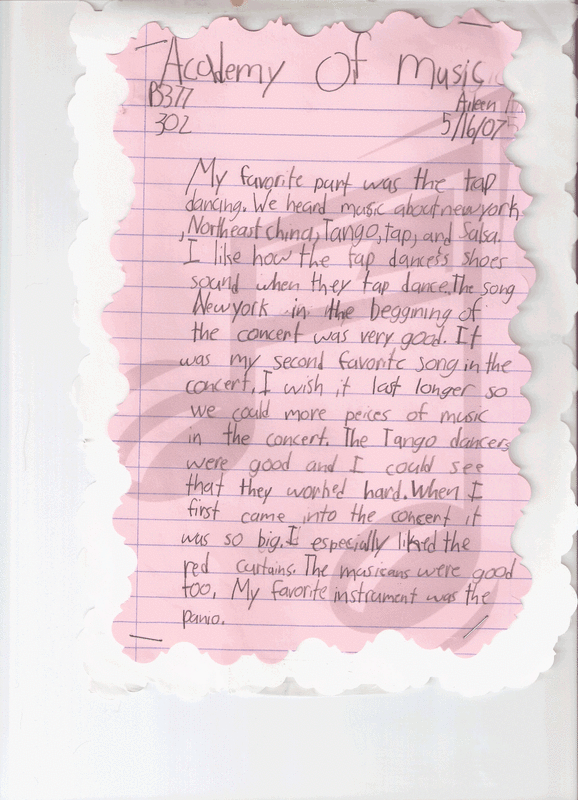 Academy Of Music
B377
Aileen
302
5/16/07
My favorite part was the tap
dancing. We heard music about new york
, Northeast china, Tango, tap, and Salsa.
I like how the tap dancess shoes
sound when they tap dance. The song
New york in the beggining of
the concert was very good. It
was my second favorite song in the
concert. I wish it last longer so
we could more peices of music
in the concert. The Tango dancers
were good and I could see
that they worked hard. When I
first came into the concert it
was so big. I especially liked the
red curtains. The musicans were good
too. My favorite instrument was the
panio.